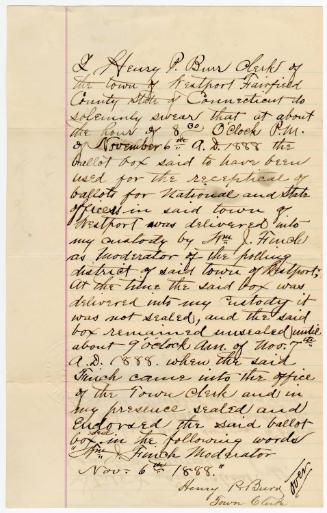 I, Henry P. Burr Clerk of
the town of Westport Fairfield
County State of Connecticut do
solemnly swear that at about
the hour of 8 00 O'Clock P.M.
of November 6th A.D. 1888 the
ballot box said to have been
used for the receptical of
ballots for National and State
officers in said town of
Westport was delivered into
my custody by Wm J. Finch
as moderator of the polling
district of said town of Westport;
At the time the said box was
delivered into my custody it
was not sealed, and the said
box remained unsealed until
about 9 o'clock A.m. of Nov. 7th
A.D. 1888. when the said
Finch came into the office
of the Town Clerk and in
my presence sealed and
Endorsed the said ballot
box in the following words
"Wm J. Finch Moderator
Nov. 6th 1888."
Henry P. Burr
Town Clerk
over